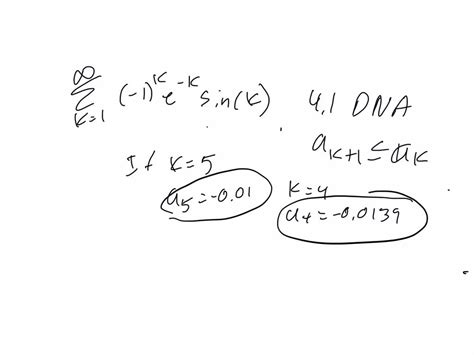 ∞
Σ (-1)^k e^-k sin(k)   4.1 DNA
k=1
a_k+1 ≤ a_k
If k=5
a_5=-0.01
k=4
a_4=-0.0139